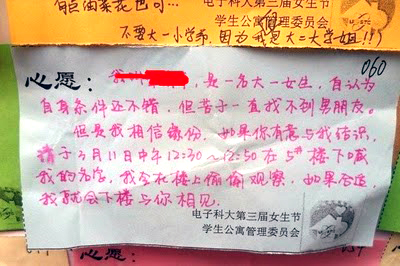 电子科大第三届女生节
学生公寓管理委员会
不要大一小学弟,因为我是大二大学姐!!!
060
心愿:我 ,是一名大一女生,自认为
自身条件还不错,但苦于一直找不到男朋友。
但是我相信缘份,如果你有意与我结识,
请于3月11日中午12:30~12:50在5#楼下喊
我的名字,我会在楼上偷偷观察,如果合适,
我就会下楼与你相见。
电子科大第三届女生节
学生公寓管理委员会
心愿: